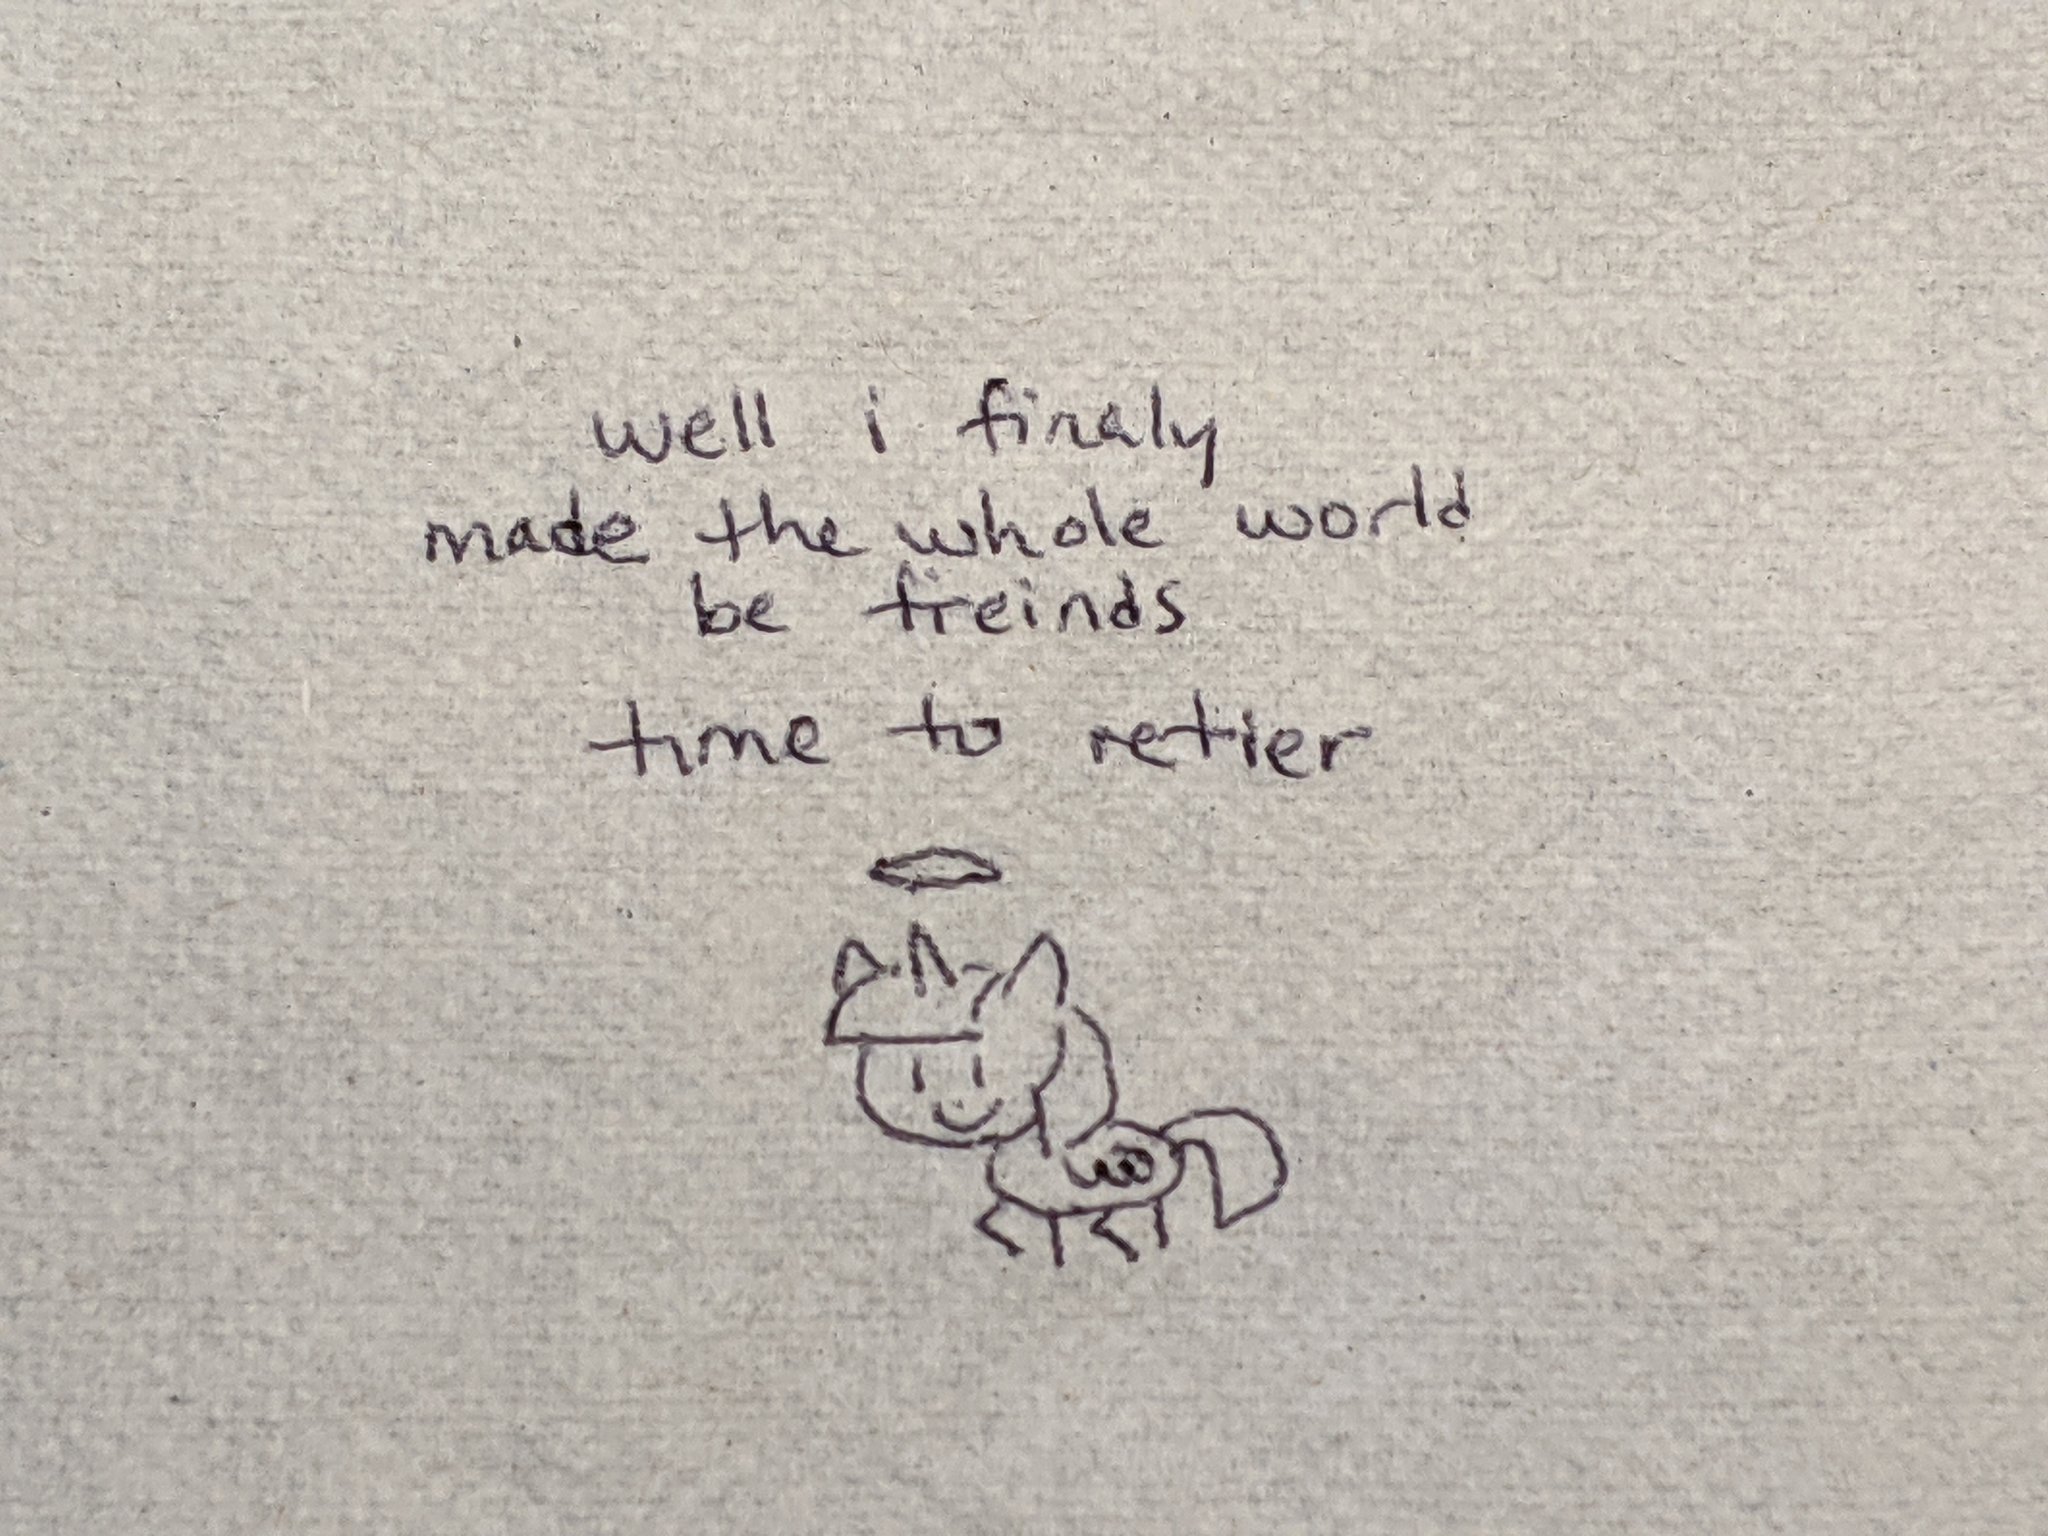 well i finaly
made the whole world
be freinds
time to retier